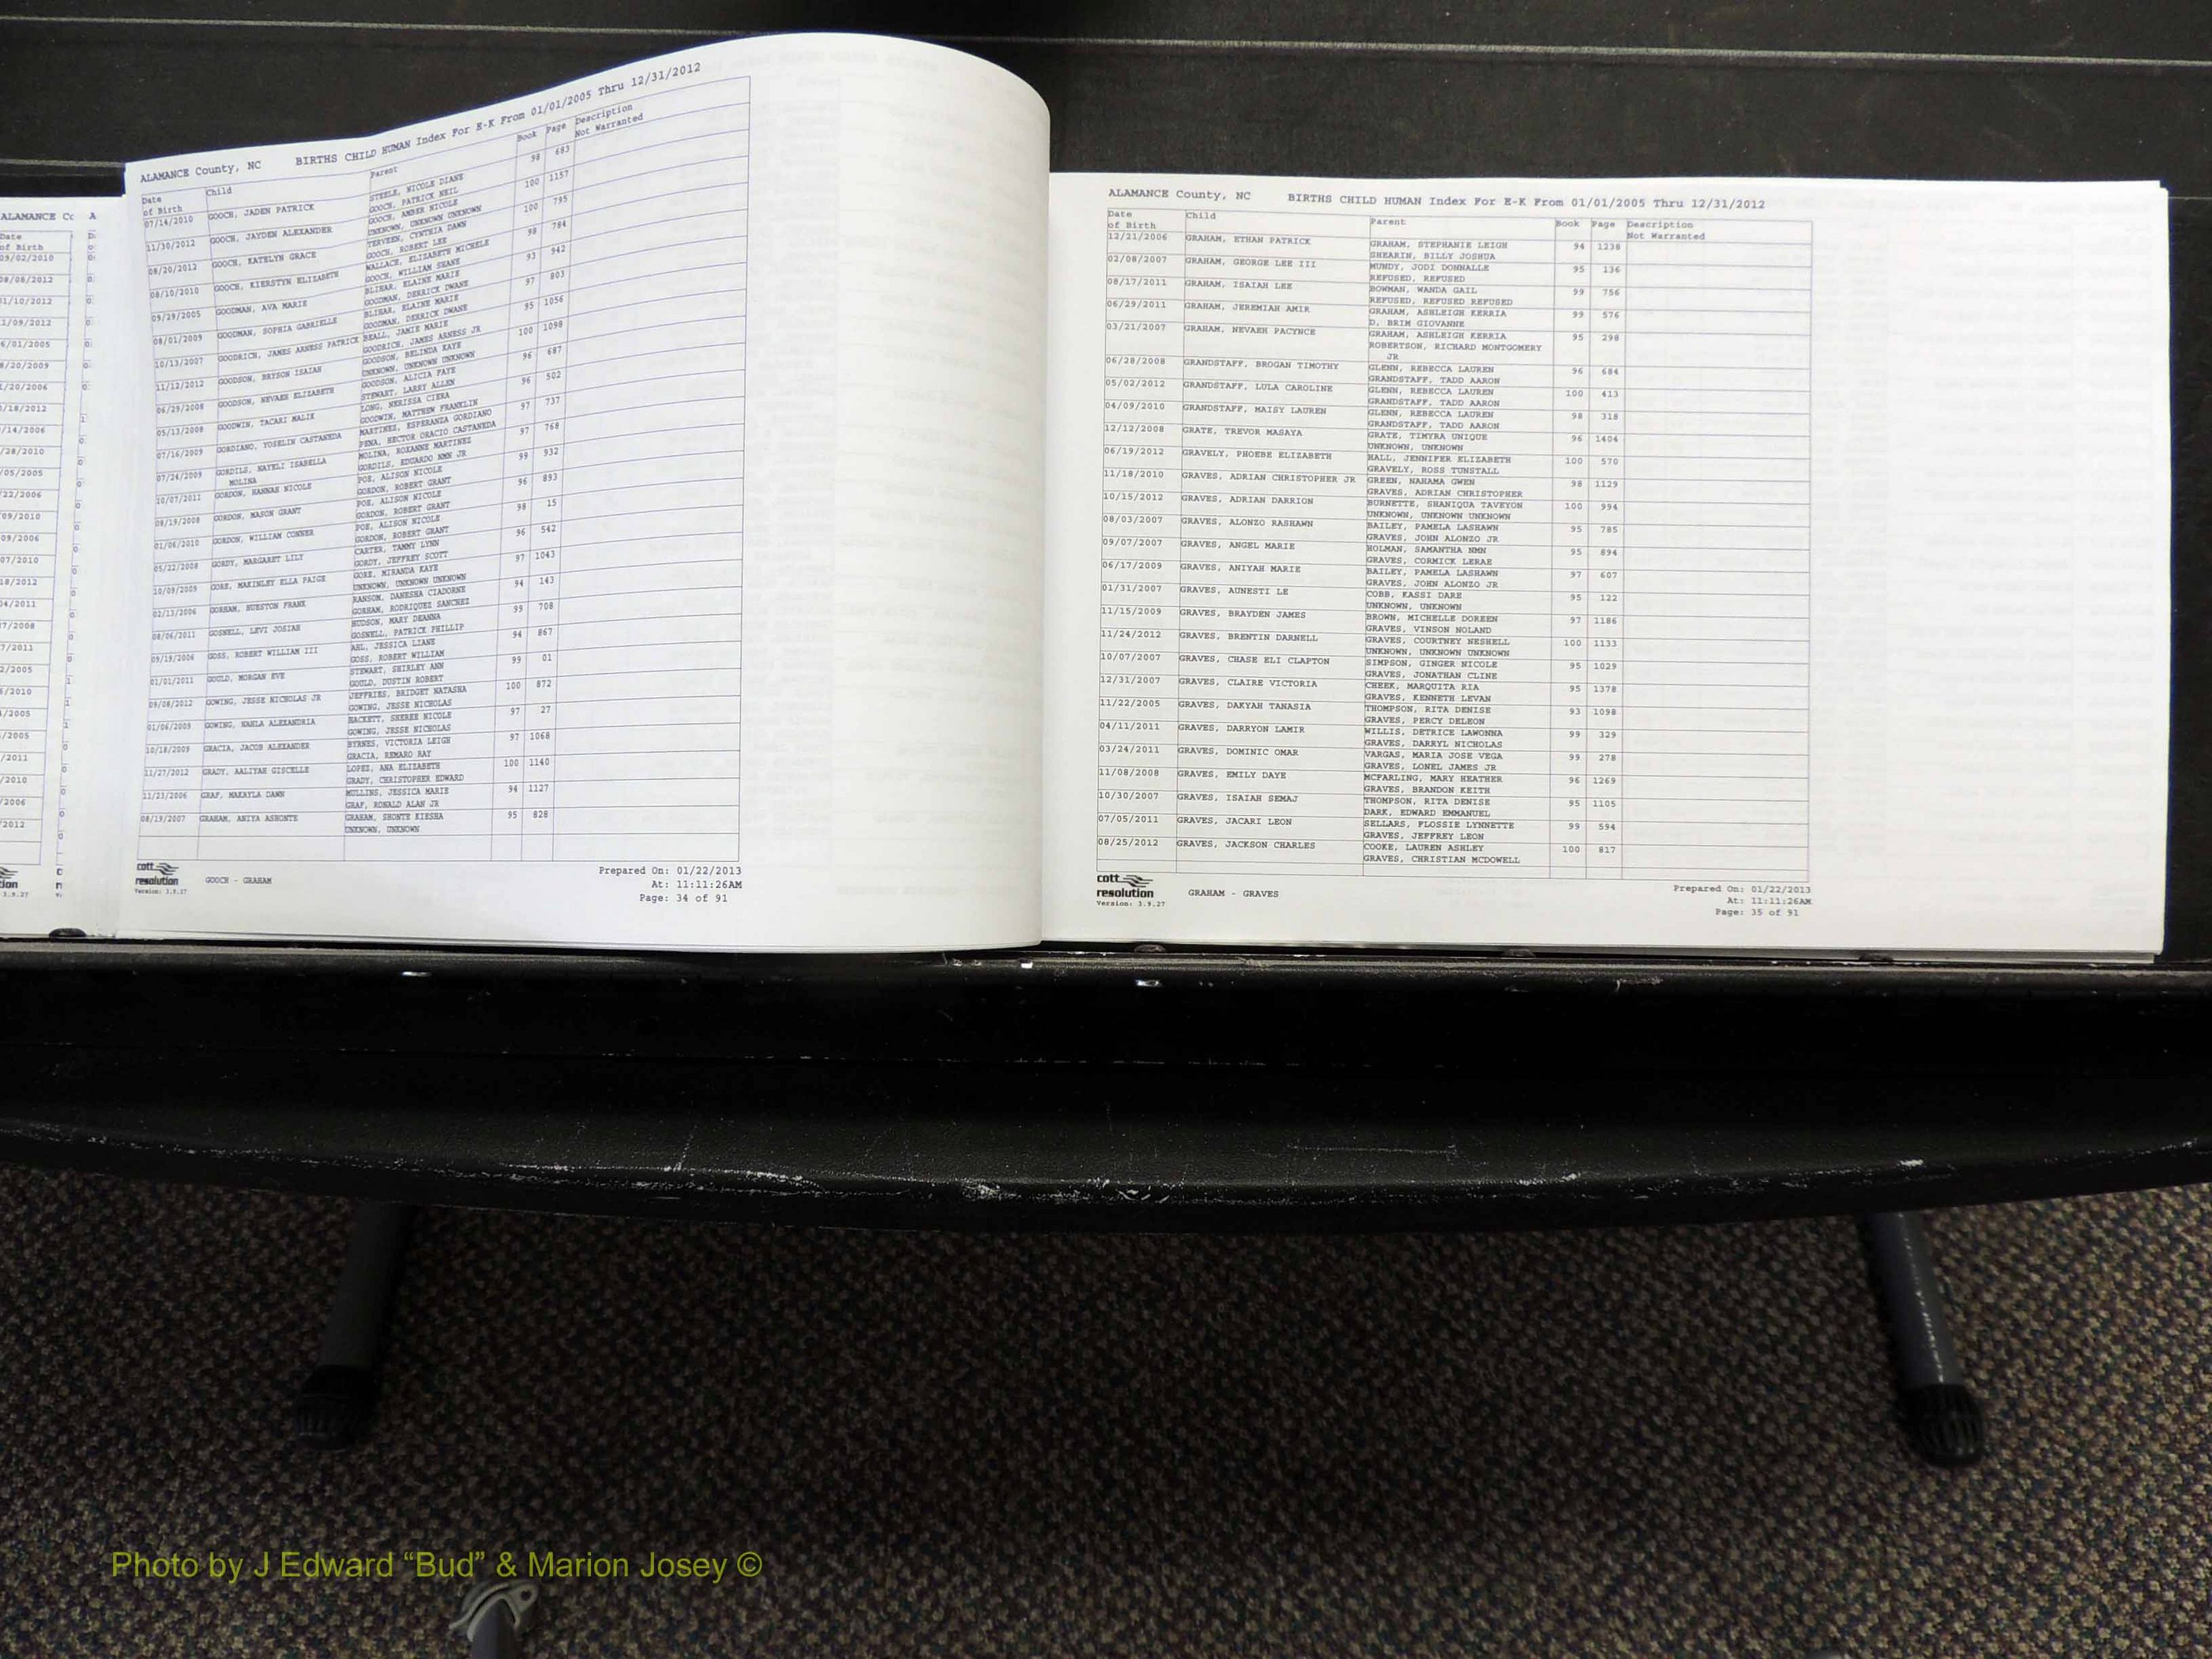 ALAMANCE County, NC BIRTHS CHILD HUMAN Index For E-K From 01/01/2005 Thru 12/31/2012
Date of Birth Child Parent Book Page Description Not Warranted
07/14/2010 GOOCH, JADEN PATRICK STEELE, NICOLE DIANE 98 683
GOOCH, PATRICK NEIL
11/30/2012 GOOCH, JAYDEN ALEXANDER GOOCH, AMBER NICOLE 100 1157
UNKNOWN, UNKNOWN UNKNOWN
08/20/2012 GOOCH, KATELYN GRACE TERVEEN, CYNTHIA DAWN 100 795
GOOCH, ROBERT LEE
08/10/2010 GOOCH, KIERSTYN ELIZABETH WALLACE, ELIZABETH MICHELE 98 784
GOOCH, WILLIAM SHANE
09/29/2005 GOODMAN, AVA MARIE BLIHAR, ELAINE MARIE 93 942
GOODMAN, DERRICK DWANE
08/01/2009 GOODMAN, SOPHIA GABRIELLE BLIHAR, ELAINE MARIE 97 803
GOODMAN, DERRICK DWANE
10/13/2007 GOODRICH, JAMES ARNESS PATRICK BEALL, JAMIE MARIE 95 1056
GOODRICH, JAMES ARNESS JR
11/12/2012 GOODSON, BRYSON ISAIAH GOODSON, BELINDA KAYE 100 1098
UNKNOWN, UNKNOWN UNKNOWN
06/29/2008 GOODSON, NEVAEH ELIZABETH GOODSON, ALICIA FAYE 96 687
STEWART, LARRY ALLEN
05/13/2008 GOODWIN, TACARI MALIK LONG, NERISSA CIERA 96 502
GOODWIN, MATTHEW FRANKLIN
07/16/2009 GORDIANO, YOSELIN CASTANEDA MARTINEZ, ESPERANZA GORDIANO 97 737
PENA, HECTOR ORACIO CASTANEDA
07/24/2009 GORDILS, NAYELI ISABELLA MOLINA, ROXANNE MARTINEZ 97 768
MOLINA GORDILS, EDUARDO NMN JR
10/07/2011 GORDON, HANNAH NICOLE POE, ALISON NICOLE 99 932
GORDON, ROBERT GRANT
08/19/2008 GORDON, MASON GRANT POE, ALISON NICOLE 96 893
GORDON, ROBERT GRANT
01/06/2010 GORDON, WILLIAM CONNER POE, ALISON NICOLE 98 15
GORDON, ROBERT GRANT
05/22/2008 GORDY, MARGARET LILY CARTER, TAMMY LYNN 96 542
GORDY, JEFFREY SCOTT
10/09/2009 GORE, MAKINLEY ELLA PAIGE GORE, MIRANDA KAYE 97 1043
UNKNOWN, UNKNOWN UNKNOWN
02/13/2006 GORHAM, HUESTON FRANK RANSOM, DANESHA CIADORNE 94 143
GORHAM, RODRIQUEZ SANCHEZ
08/06/2011 GOSNELL, LEVI JOSIAH HUDSON, MARY DEANNA 99 708
GOSNELL, PATRICK PHILLIP
09/19/2006 GOSS, ROBERT WILLIAM III AHL, JESSICA LIANE 94 867
GOSS, ROBERT WILLIAM
01/01/2011 GOULD, MORGAN EVE STEWART, SHIRLEY ANN 99 01
GOULD, DUSTIN ROBERT
09/08/2012 GOWING, JESSE NICHOLAS JR JEFFRIES, BRIDGET NATASHA 100 872
GOWING, JESSE NICHOLAS
01/06/2009 GOWING, NAHLA ALEXANDRIA HACKETT, SHEREE NICOLE 97 27
GOWING, JESSE NICHOLAS
10/18/2009 GRACIA, JACOB ALEXANDER BYRNES, VICTORIA LEIGH 97 1068
GRACIA, REMARO RAY
11/27/2012 GRADY, AALIYAH GISCELLE LOPEZ, ANA ELIZABETH 100 1140
GRADY, CHRISTOPHER EDWARD
11/23/2006 GRAF, MAKAYLA DAWN MULLINS, JESSICA MARIE 94 1127
GRAF, RONALD ALAN JR
08/19/2007 GRAHAM, ANIYA ASHONTE GRAHAM, SHONTE KIESHA 95 828
UNKNOWN, UNKNOWN
cott resolution
Version: 3.9.27
GOOCH - GRAHAM
Prepared On: 01/22/2013
At: 11:11:26AM
Page: 34 of 91
ALAMANCE County, NC BIRTHS CHILD HUMAN Index For E-K From 01/01/2005 Thru 12/31/2012
Date of Birth Child Parent Book Page Description Not Warranted
12/21/2006 GRAHAM, ETHAN PATRICK GRAHAM, STEPHANIE LEIGH 94 1238
SHEARIN, BILLY JOSHUA
02/08/2007 GRAHAM, GEORGE LEE III MUNDY, JODI DONNALLE 95 136
REFUSED, REFUSED
08/17/2011 GRAHAM, ISAIAH LEE BOWMAN, WANDA GAIL 99 756
REFUSED, REFUSED REFUSED
06/29/2011 GRAHAM, JEREMIAH AMIR GRAHAM, ASHLEIGH KERRIA 99 576
D, BRIM GIOVANNE
03/21/2007 GRAHAM, NEVAEH PACYNCE GRAHAM, ASHLEIGH KERRIA 95 298
ROBERTSON, RICHARD MONTGOMERY
JR
06/28/2008 GRANDSTAFF, BROGAN TIMOTHY GLENN, REBECCA LAUREN 96 684
GRANDSTAFF, TADD AARON
05/02/2012 GRANDSTAFF, LULA CAROLINE GLENN, REBECCA LAUREN 100 413
GRANDSTAFF, TADD AARON
04/09/2010 GRANDSTAFF, MAISY LAUREN GLENN, REBECCA LAUREN 98 318
GRANDSTAFF, TADD AARON
12/12/2008 GRATE, TREVOR MASAYA GRATE, TIMYRA UNIQUE 96 1404
UNKNOWN, UNKNOWN
06/19/2012 GRAVELY, PHOEBE ELIZABETH HALL, JENNIFER ELIZABETH 100 570
GRAVELY, ROSS TUNSTALL
11/18/2010 GRAVES, ADRIAN CHRISTOPHER JR GREEN, NAHAMA GWEN 98 1129
GRAVES, ADRIAN CHRISTOPHER
10/15/2012 GRAVES, ADRIAN DARRION BURNETTE, SHANIQUA TAVEYON 100 994
UNKNOWN, UNKNOWN UNKNOWN
08/03/2007 GRAVES, ALONZO RASHAWN BAILEY, PAMELA LASHAWN 95 785
GRAVES, JOHN ALONZO JR
09/07/2007 GRAVES, ANGEL MARIE HOLMAN, SAMANTHA NMN 95 894
GRAVES, CORMICK LERAE
06/17/2009 GRAVES, ANIYAH MARIE BAILEY, PAMELA LASHAWN 97 607
GRAVES, JOHN ALONZO JR
01/31/2007 GRAVES, AUNESTI LE COBB, KASSI DARE 95 122
UNKNOWN, UNKNOWN
11/15/2009 GRAVES, BRAYDEN JAMES BROWN, MICHELLE DOREEN 97 1186
GRAVES, VINSON NOLAND
11/24/2012 GRAVES, BRENTIN DARNELL GRAVES, COURTNEY NESHELL 100 1133
UNKNOWN, UNKNOWN UNKNOWN
10/07/2007 GRAVES, CHASE ELI CLAPTON SIMPSON, GINGER NICOLE 95 1029
GRAVES, JONATHAN CLINE
12/31/2007 GRAVES, CLAIRE VICTORIA CHEEK, MARQUITA RIA 95 1378
GRAVES, KENNETH LEVAN
11/22/2005 GRAVES, DAKYAH TANASIA THOMPSON, RITA DENISE 93 1098
GRAVES, PERCY DELEON
04/11/2011 GRAVES, DARRYON LAMIR WILLIS, DETRICE LAWONNA 99 329
GRAVES, DARRYL NICHOLAS
03/24/2011 GRAVES, DOMINIC OMAR VARGAS, MARIA JOSE VEGA 99 278
GRAVES, LONEL JAMES JR
11/08/2008 GRAVES, EMILY DAYE MCFARLING, MARY HEATHER 96 1269
GRAVES, BRANDON KEITH
10/30/2007 GRAVES, ISAIAH SEMAJ THOMPSON, RITA DENISE 95 1105
DARK, EDWARD EMMANUEL
07/05/2011 GRAVES, JACARI LEON SELLARS, FLOSSIE LYNNETTE 99 594
GRAVES, JEFFREY LEON
08/25/2012 GRAVES, JACKSON CHARLES COOKE, LAUREN ASHLEY 100 817
GRAVES, CHRISTIAN MCDOWELL
cott resolution
Version: 3.9.27
GRAHAM - GRAVES
Prepared On: 01/22/2013
At: 11:11:26AM
Page: 35 of 91
Photo by J Edward “Bud” & Marion Josey ©